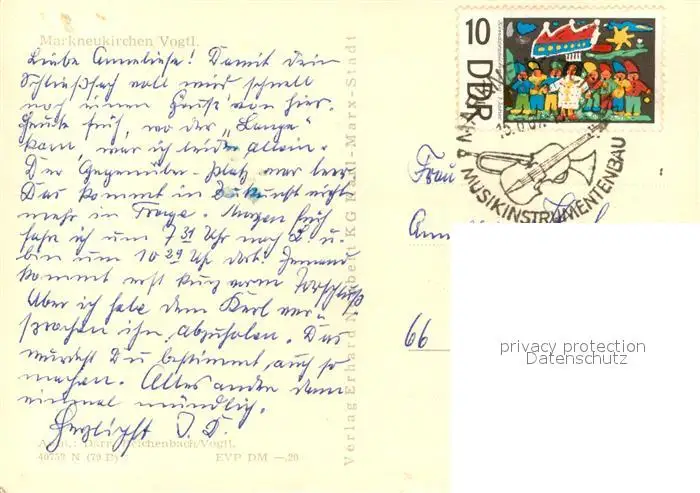 Markneukirchen Vogtl.
Liebe Anneliese! Damit Dein
Schließfach voll wird schnell
noch einen Gruß von hier.
Heute früh, wo der „Lange"
kam, war ich leider allein.
Der Gegenüber-Platz war leer
Das kommt in Zukunft nicht
mehr in Frage. Morgen früh
fahre ich um 7 31 Uhr nach u.
bin um 10 29 Uhr dort. Jemand
kommt erst kurz vorm Torschluß
Aber ich habe dem Kerl ver-
sprochen ihn abzuholen. Das
würdest Du bestimmt auch so
machen. Alles andre dann
einmal mündlich.
Herzlichst
Reichenbach/Vogtl.
40752 N EVP DM —,20
Verlag Erhard KG Karl-Marx-Stadt
10
DDR
MUSIKINSTRUMENTENBAU
Frau
66
privacy protection
Datenschutz